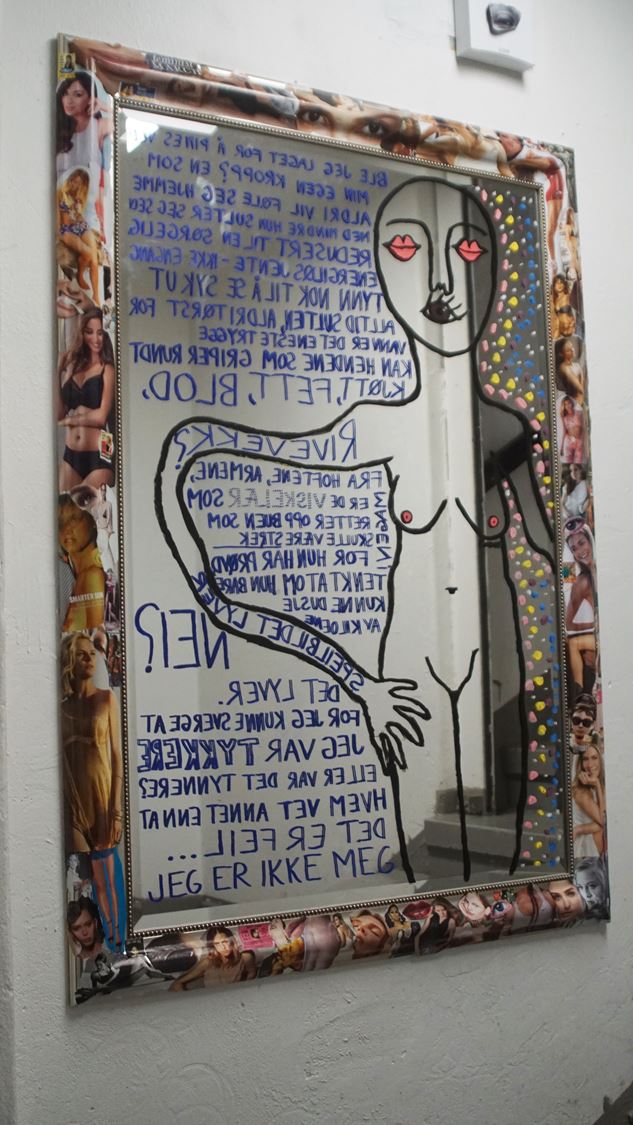 BLE JEG LAGET FOR Å PINES
MIN EGEN KROPP? EN SOM
ALDRI VIL FØLE SEG HJEMME
MED MINDRE HUN SULTER SEG
REDUSERT TIL EN SØRGELIG
ENERGILØS JENTE - IKKE ENGANG
TYNN NOK TIL Å SE SYK UT
ALLTID SULTEN, ALDRI TØRST FOR
VANN ER DET ENESTE TRYGGE
KAN HENDENE SOM GRIPER RUNDT
KJØTT, FETT, BLOD,
RIVE VEKK?
FRA HOFTENE, ARMENE,
MAGEN!
ER DE VISKELÆR SOM
RETTER OPP BUEN SOM
SKULLE VÆRE STREK
FOR HUN HAR PRØVD
TENKT AT OM HUN BARE
KUNNE DUSJE
AV KILOENE
SPEILBILDET LYVER
NEI?
DET LYVER.
FOR JEG KUNNE SVERGE AT
JEG VAR TYKKERE
ELLER VAR DET TYNNERE?
HVEM VET ANNET ENN AT
DET ER FEIL...
JEG ER IKKE MEG